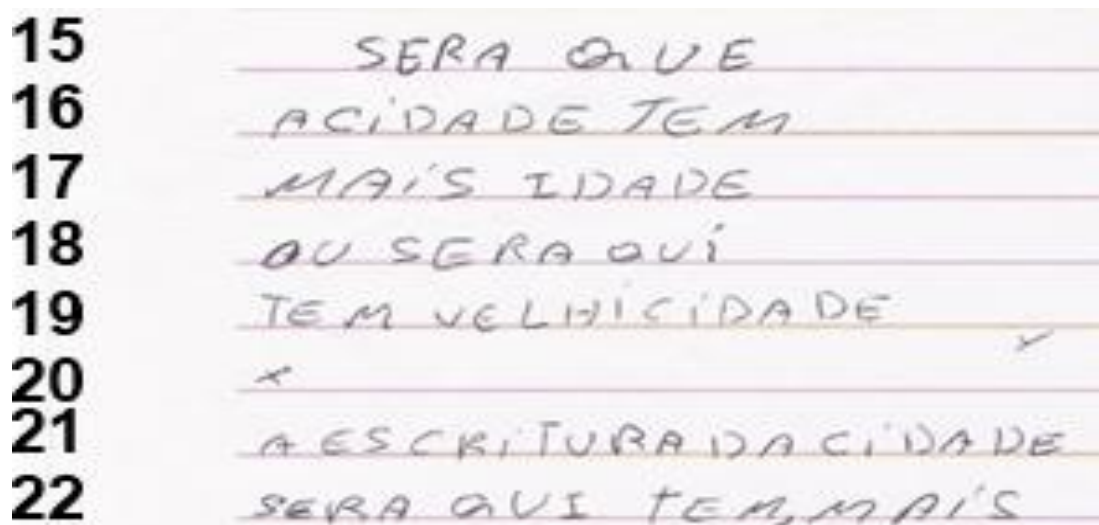 15 SERA QUE
16 ACiDADE TEM
17 MAiS IDADE
18 OU SERA QUi
19 TEM VELHiCiDADE
20 x
21 AESCRiTURA DA CiDADE
22 SERA QUI TEM, MAiS